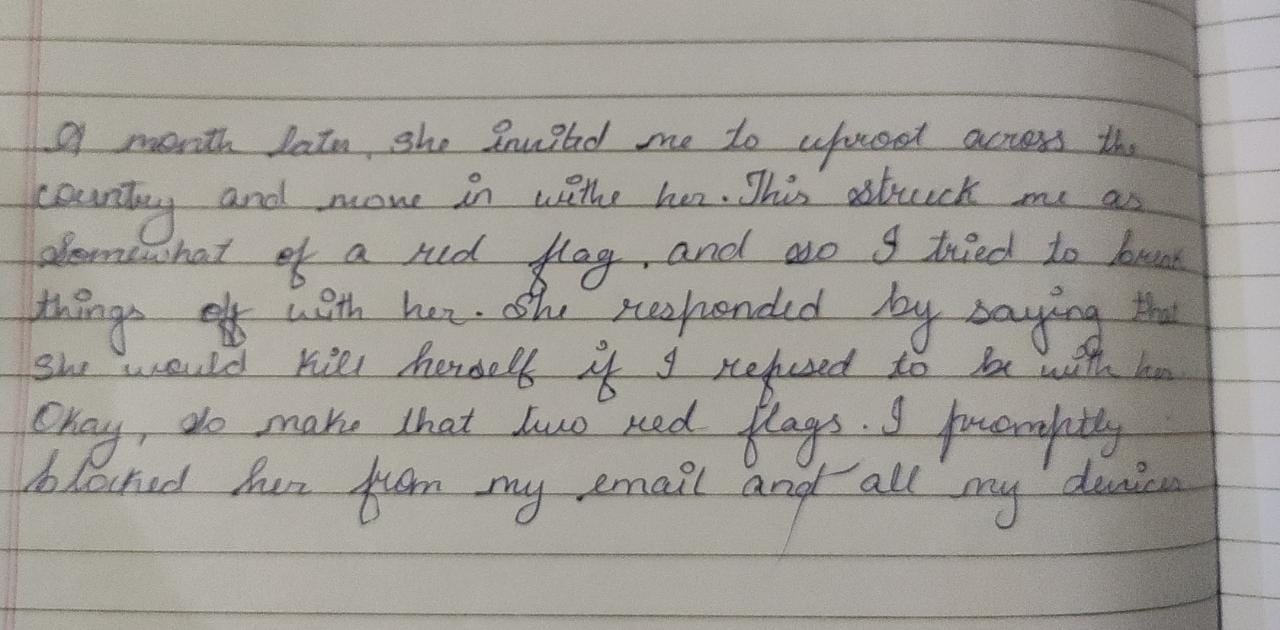 A month later, she invited me to uproot across the
country and move in withe her. This struck me as
somewhat of a red flag, and so I tried to break
things off with her. She responded by saying that
she would kill herself if I refused to be with her.
Okay, so make that two red flags. I promptly
blocked her from my email and all my devices